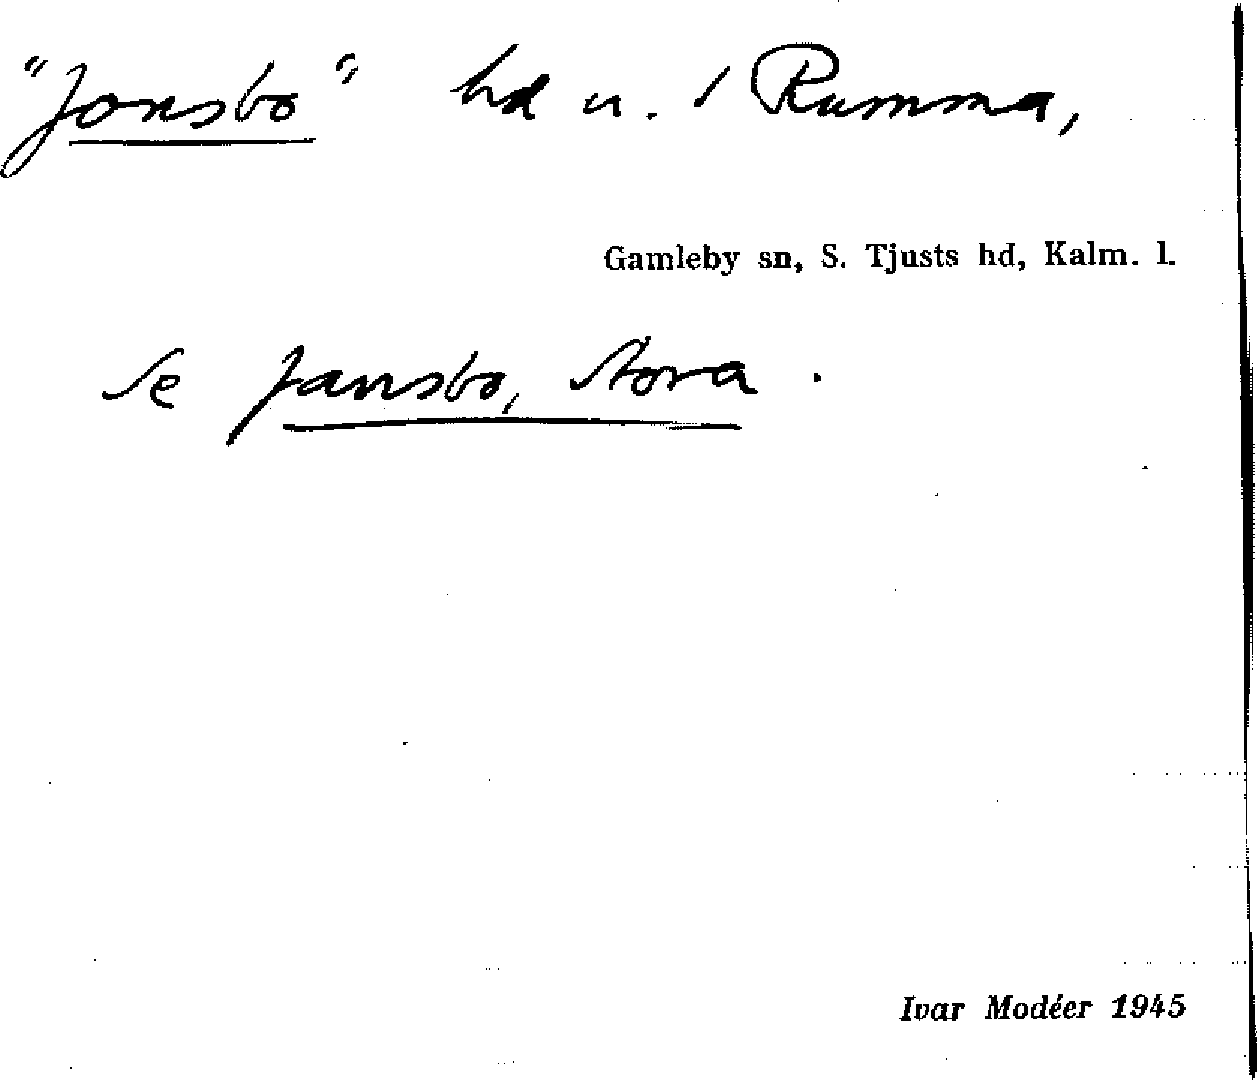 "Jonsbo" hd u. 1 Rumma,
Gamleby sn, S. Tjusts hd, Kalm. l.
Se Jansbo, Stora.
Ivar Modéer 1945